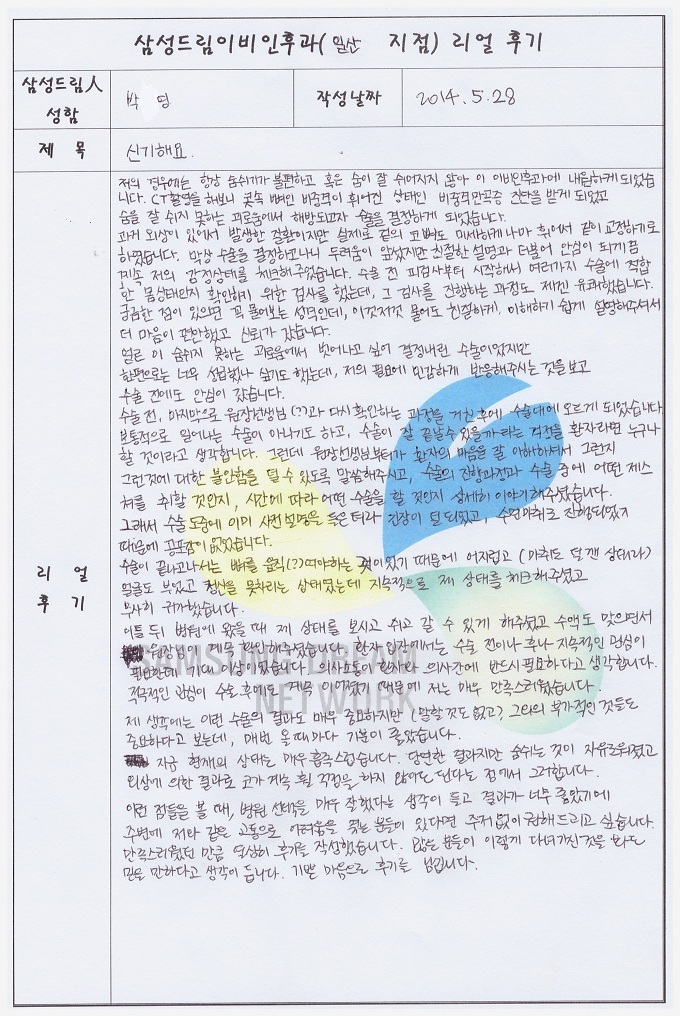 삼성드림이비인후과( 일산 지점) 리얼 후기
삼성드림人
성함
박 영
작성날짜
2014. 5. 28
제 목
신기해요.
리 얼
후 기
저의 경우에는 항상 숨쉬기가 불편하고 혹은 숨이 잘 쉬어지지 않아 이 이비인후과에 내원하게 되었습
니다. CT촬영을 해보니 콧속 뼈인 비중격이 휘어진 상태인 비중격만곡증 진단을 받게 되었고
숨을 잘 쉬지 못하는 괴로움에서 해방되고자 수술을 결정하게 되었습니다.
과거 외상이 있어서 발생한 질환이지만 실제로 겉의 코뼈도 미세하게나마 휘어서 같이 교정하기로
하였습니다. 막상 수술을 결정하고나니 두려움이 앞섰지만 친절한 설명과 더불어 안심이 되게끔
계속 저의 감정상태를 체크해주었습니다. 수술 전 피검사부터 시작해서 여러가지 수술에 적합
한 몸상태인지 확인하기 위한 검사를 했는데, 그 검사를 진행하는 과정도 제겐 유쾌했습니다.
궁금한 점이 있으면 꼭 물어보는 성격인데, 이것저것 물어도 친절하게, 이해하기 쉽게 설명해주셔서
더 마음이 편안했고 신뢰가 갔습니다.
얼른 이 숨쉬지 못하는 괴로움에서 벗어나고 싶어 결정내린 수술이었지만
한편으로는 너무 성급했나 싶기도 했는데, 저의 필요에 민감하게 반응해주시는 것을 보고
수술 전에도 안심이 갔습니다.
수술 전, 마지막으로 원장선생님 (?)과 다시 확인하는 과정을 거친 후에 수술대에 오르게 되었습니다.
보통적으로 일어나는 수술이 아니기도 하고, 수술이 잘 끝날수 있을까 라는 걱정을 환자라면 누구나
할 것이라고 생각합니다. 그런데 원장선생님부터가 환자의 마음을 잘 이해하셔서 그런지
그런것에 대한 불안함을 덜 수 있도록 말씀해주시고, 수술의 진행과정과 수술 중에 어떤 제스
처를 취할 것인지, 시간에 따라 어떤 수술을 할 것인지 상세히 이야기해주셨습니다.
그래서 수술 도중에 이미 사전 설명을 들은 터라 긴장이 덜 되었고, 수면마취로 진행되었기
때문에 공포감이 없었습니다.
수술이 끝나고나서는 뼈를 움직(?)여야하는 것이 있기 때문에 어지럽고 (마취도 덜 깬 상태라)
얼굴도 부었고 정신을 못차리는 상태였는데 지속적으로 제 상태를 체크해주셨고
무사히 귀가했습니다.
이틀 뒤 병원에 왔을 때 제 상태를 보시고 쉬고 갈 수 있게 해주셨고 수액도 맞으면서
원장님이 계속 확인해주셨습니다. 환자 입장에서는 수술 전이나 후나 지속적인 관심이
필요한데 기대 이상이었습니다. 의사소통이 환자와 의사간에 반드시 필요하다고 생각합니다.
적극적인 관심이 수술 후에도 계속 이어졌기 때문에 저는 매우 만족스러웠습니다.
제 생각에는 이런 수술의 결과도 매우 중요하지만 (말할것도 없고) 그외의 부가적인 것들도
중요하다고 보는데, 매번 올 때마다 기분이 좋았습니다.
지금 현재의 상태는 매우 흡족스럽습니다. 당연한 결과지만 숨쉬는 것이 자유로워졌고
외상에 의한 결과로 코가 계속 휠 걱정을 하지 않아도 된다는 점에서 그러합니다.
이런 점들을 볼 때, 병원 선택을 매우 잘했다는 생각이 들고 결과가 너무 좋았기에
주변에 저와 같은 고통으로 어려움을 겪는 분들이 있다면 주저없이 권해드리고 싶습니다.
만족스러웠던 만큼 열심히 후기를 작성했습니다. 많은 분들이 이렇게 다녀가신 것을 봐도
믿을 만하다고 생각이 듭니다. 기쁜 마음으로 후기를 남깁니다.
SAMSUNG DREAM
NETWORK